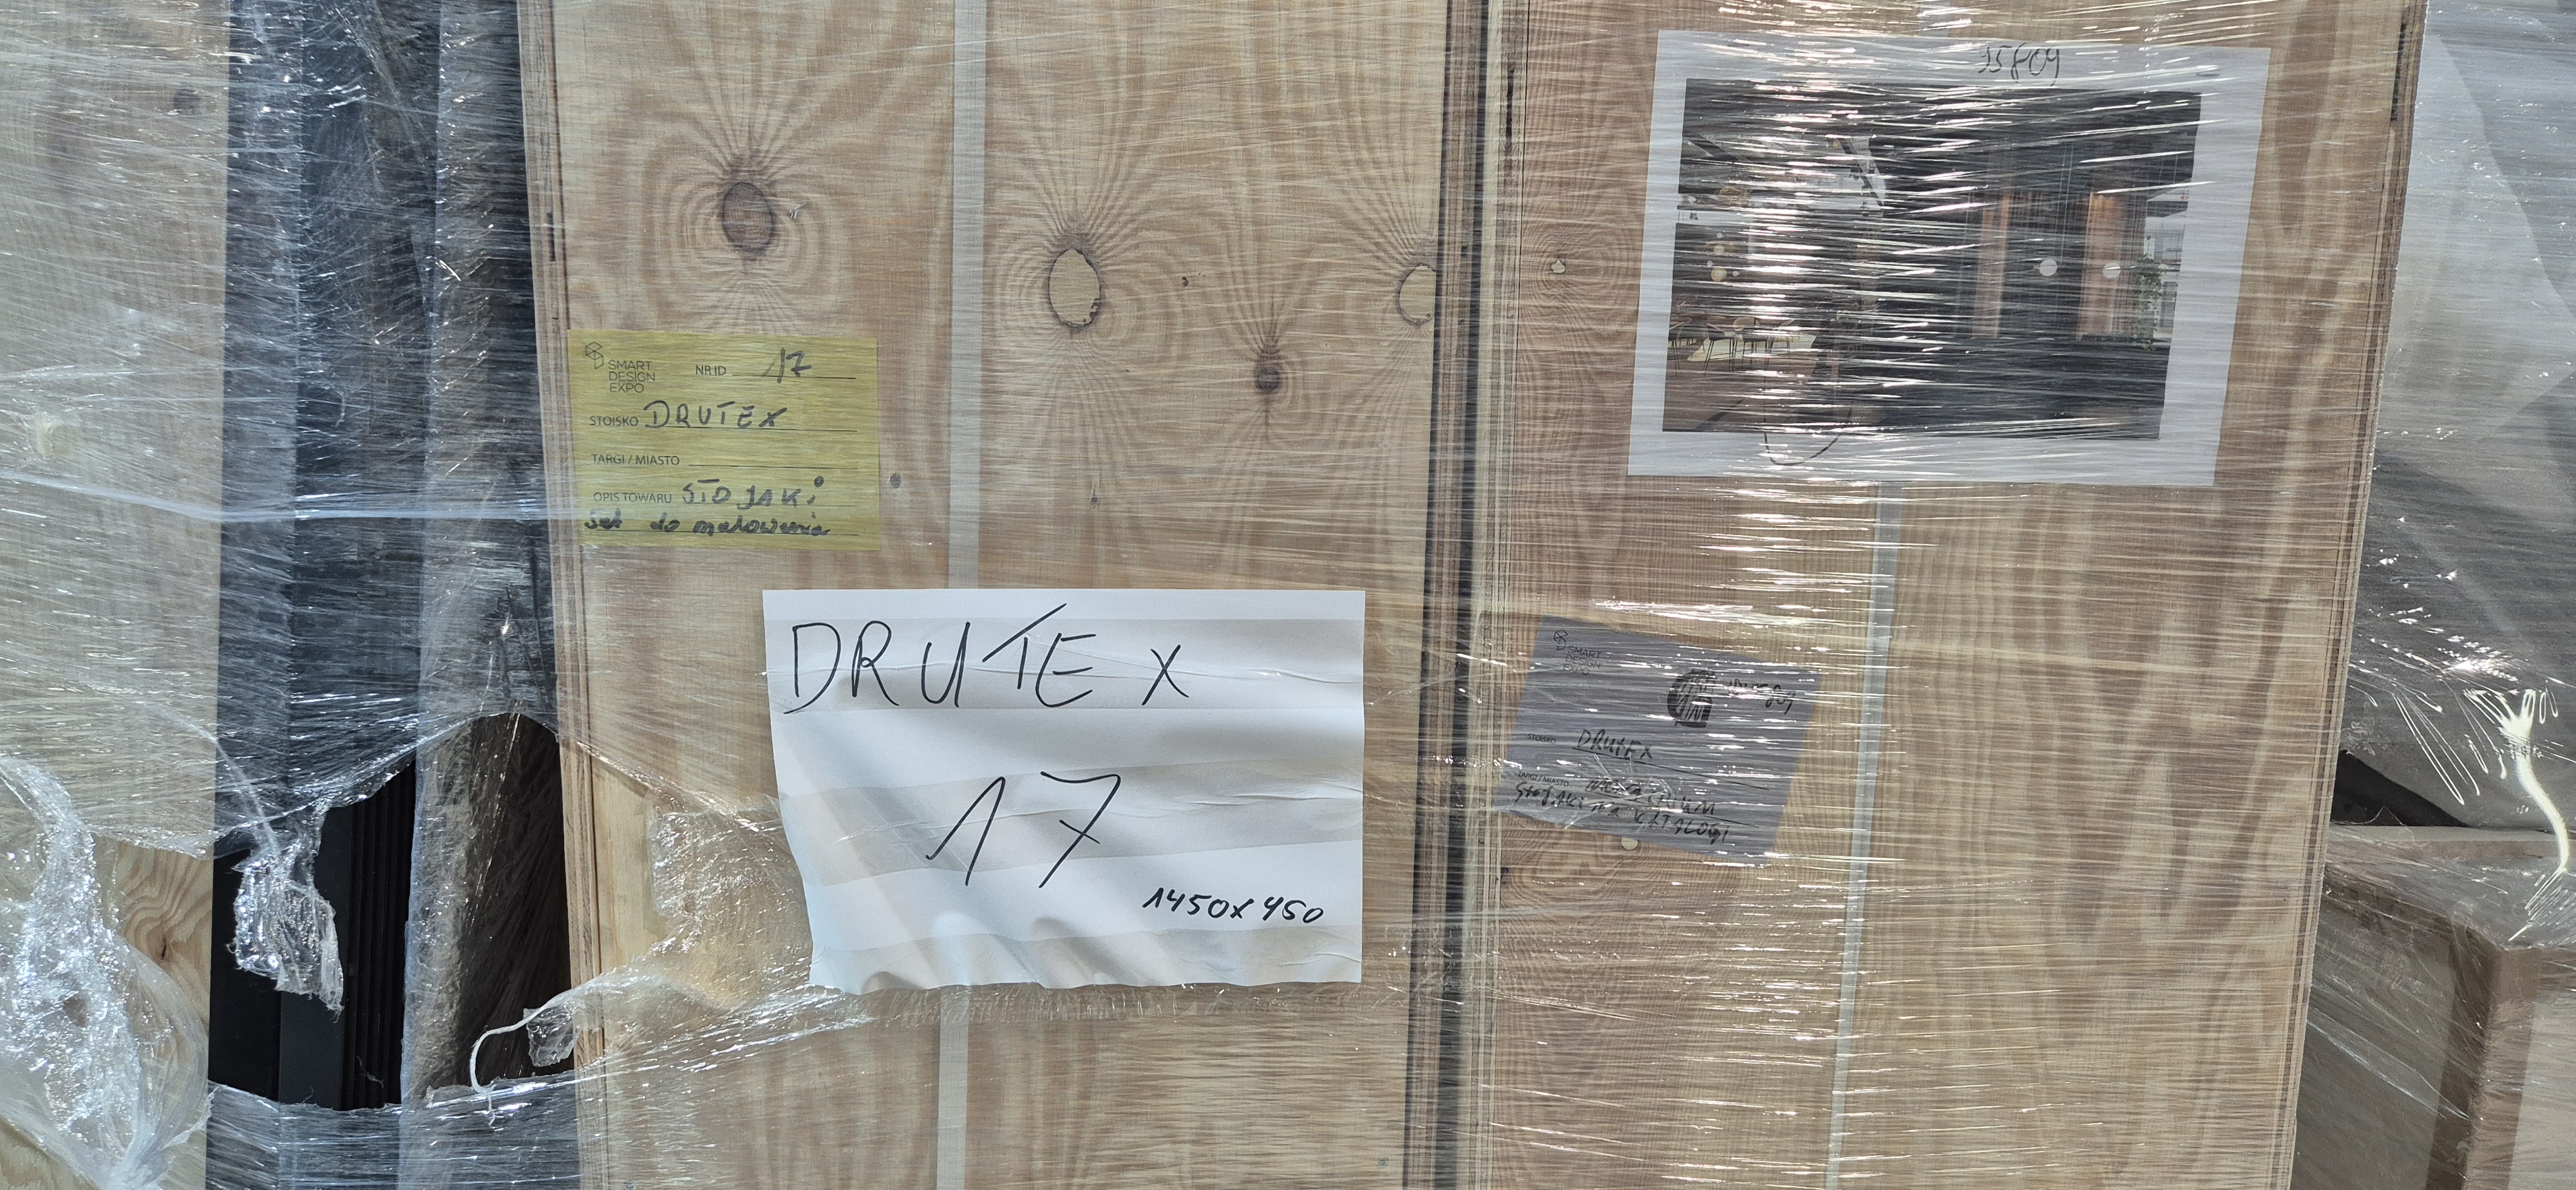 SMART
DESIGN
EXPO
NR ID 17
STOISKO DRUTEX
TARGI / MIASTO
OPIS TOWARU STOJAKI
do malowania
DRUTEX
17
1450x450
15809
SMART
DESIGN
EXPO
STOISKO DRUTEX
TARGI / MIASTO
STOJAKI NA KATALOGI